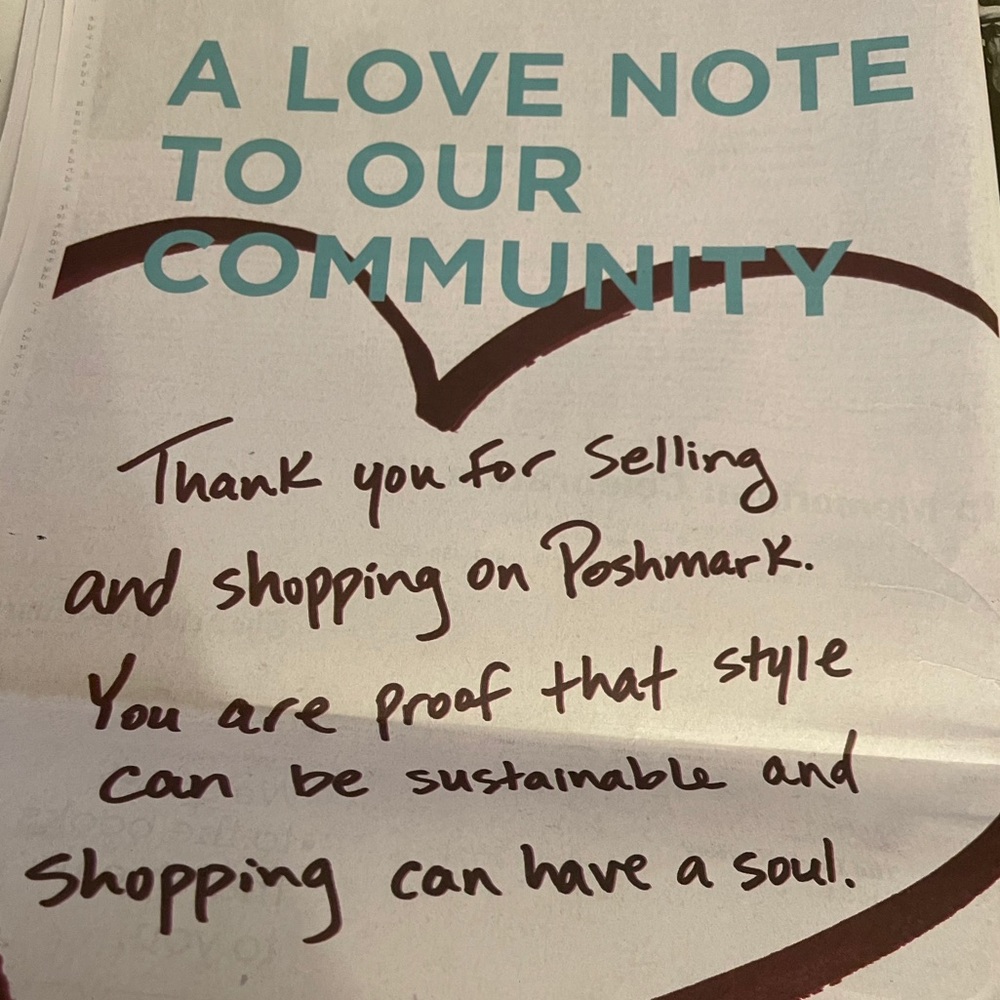 A LOVE NOTE
TO OUR
COMMUNITY
Thank you for selling
and shopping on Poshmark.
You are proof that style
can be sustainable and
shopping can have a soul.